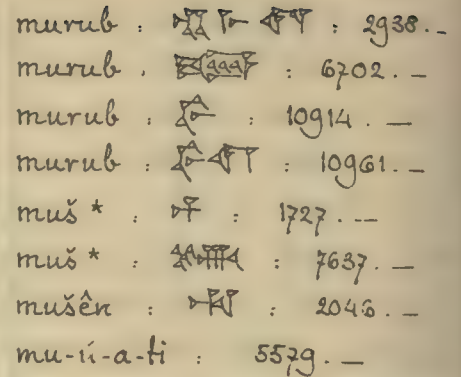 murub : : 2938. _
murub . : 6702. _
murub : 𒊩 : 10914. _
murub : : 10961. _
muš * : : 1727. --
muš * : : 7637. _
mušên : 𒄷 : 2046. _
mu-ú-a-ti : 5579. _